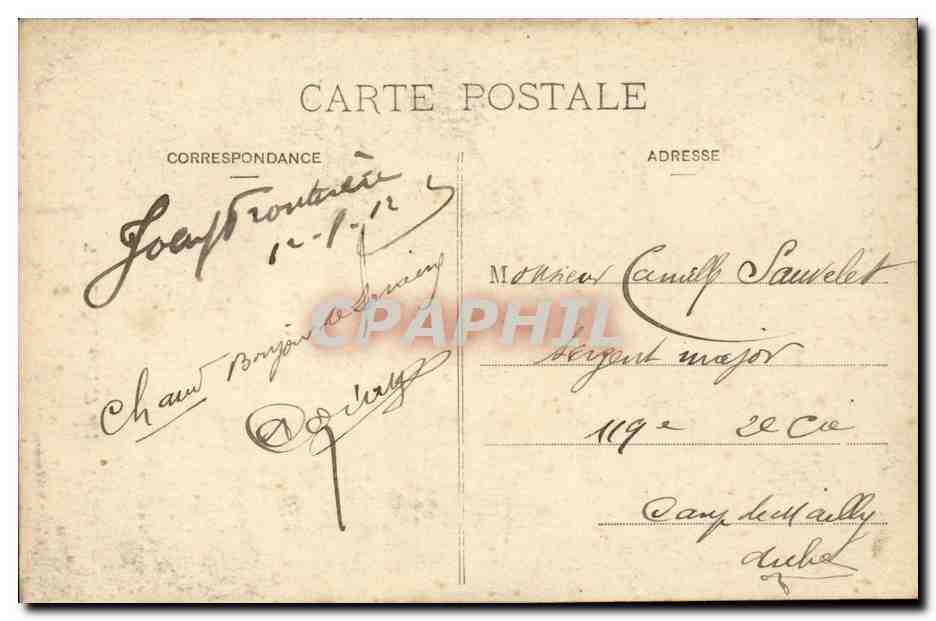 CARTE POSTALE
CORRESPONDANCE
12-8-12
Chaud Bonjour de
ADRESSE
Monsieur Camille Sauvelet
Sergent major
119e 2e Cie
Camp de Mailly
Aube
CPAPHIL